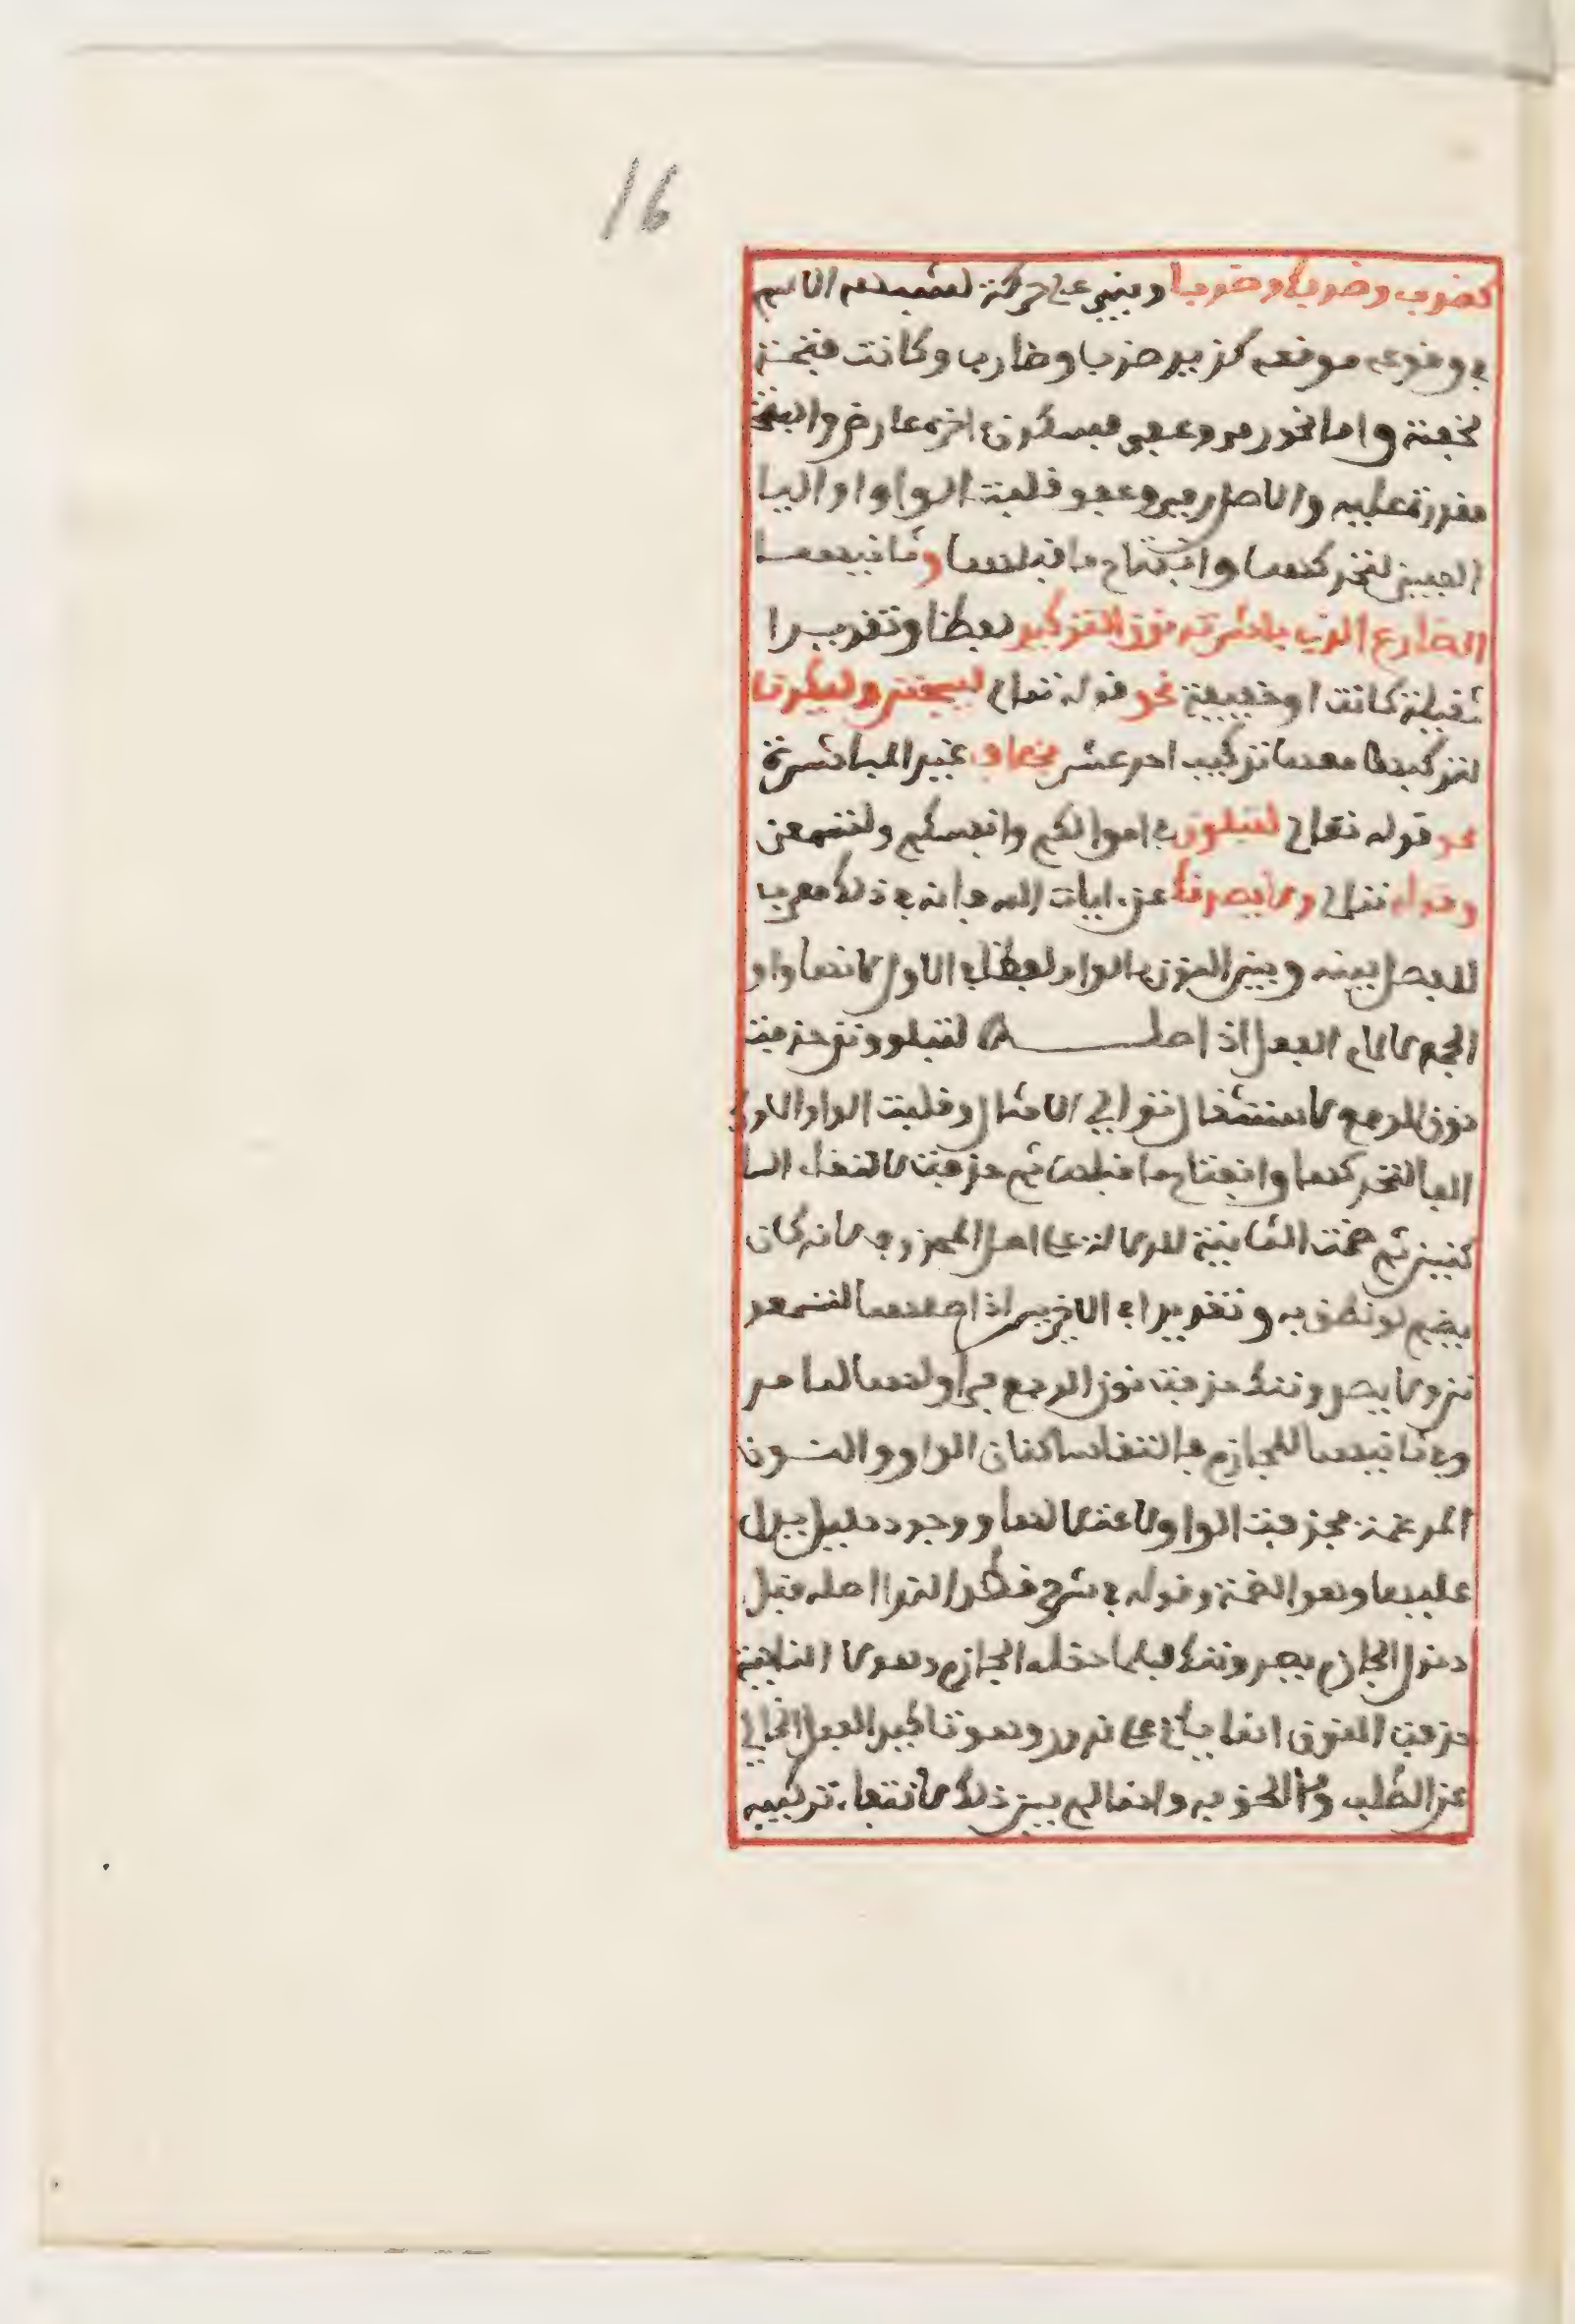 16
كضرب وضربك وضربا وبني على حركة لشبهه الاسم
في وقوعه موقعه كزيد ضرب وضارب وكانت فتحة
لخفته واما نحو رمى وعفى فسكون اخره عارض والفتحة
مقدرة عليه والاصل رمي وعفو فلبت الواو او اليا
الفين لتحركهما وانفتاح ما قبلهما وثانيهما
المضارع الذي باشرته نون التوكيد لفظا وتقديرا
ثقيلة كانت او خفيفة نحو قوله تعالى ليسجنن وليكونا
لتركبها معها تركيب احد عشر بخلاف غير المباشرة
نحو قوله تعالى لتبلون في اموالكم وانفسكم ولتسمعن
وقوله تعالى ولا يصدنك عن ايات الله فانه في ذلك معرب
للفصل بينه وبين النون بالواو لفظا في الاول لانها واو
الجمع لا لام الفعل اذ اصله لتبلوونن حذفت
نون الرفع لاستثقال توالي الامثال وقلبت الواو الاولى
الفا لتحركها وانفتاح ما قبلها ثم حذفت لالتقاء السا
كنين ثم ضمت الثانية للدلالة على اصل المحذوف لانه كان
يضم لو نطق به وتقديرا في الاخيرين اذ اصلهما لتسمعو
نن ولا يصدوننك حذفت نون الرفع في اولهما لما مر
وفي ثانيهما للجازم فالتقا ساكنان الواو والنون
المدغمة فحذفت الواو لاعتلالها ووجود دليل يدل
عليها وهو الضمة وقوله في شرح قطر الندا اصله قبل
دخول الجازم يصدوننك فلما دخله الجازم وهو لا الناهية
حذفت النون انما ياتي على ندور وهو تاكيد الفعل الخالي
عن الطلب وما الحق به وانما لم يبن ذلك لانتفاء تركيبه